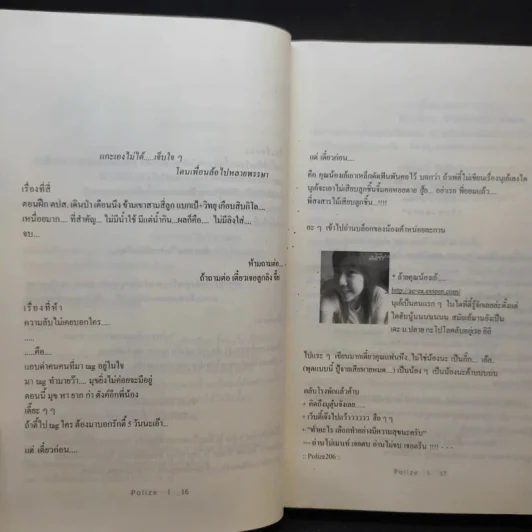 แกะเองไม่ได้.... เจ็บใจ ๆ
โดนเพื่อนล้อไปหลายพรรษา
เรื่องที่สี่
ตอนฝึก ตปส. เดินป่า เดือนนึง ข้ามเขาสามสี่ลูก แบกเป้+วิทยุ เกือบสิบกิโล...
เหนื่อยมาก.... ที่สำคัญ... ไม่มีน้ำใช้ มีแต่น้ำกิน...ผลก็คือ.... ไม่มีลิงใส่....
จบ...
ห้ามถามต่อ...
ถ้าถามต่อ เดี๋ยวเจอลูกลิง ขึ้
เรื่องที่ห้า
ความลับไม่เคยบอกใคร....
.....
....คือ...
แอบด่าคนคนที่มา tag อยู่ในใจ
มา tag ทำมายว้า... มุขยิ่งไม่ค่อยจะมีอยู่
ตอนนี้ มุข หา ยาก ก่า ตังค์อีกพี่น้อง
เดี๊ยะ ๆ ๆ
ถ้าดี๊ไป tag ใคร ต้องมาบอกรักดี๊ 5 วันนะเอ้า...
แต่ เดี๋ยวก่อน....
Polize | 16
แต่ เดี๋ยวก่อน....
คือ คุณน้องเอ๋เอาเหล็กดัดฟันพันคอไว้ บอกว่า ถ้าพี่ดี๊ไม่เขียนเรื่องนุ้ยเอ๋ลงใด
นุ้ยจะเอาไม้เสียบลูกชิ้นจิ้มคอหอยตาย สู้ด... อย่างรอ พี่ยอมแล้ว....
พี่สงสารไม้เสียบลูกชิ้น.. !!!!
อะ ๆ เข้าไปอ่านบล็อกของน้องเค้าหน่อยละกาน
* อ้ายคุณน้องเอ๋....
http://ae-ra.exteen.com/
นุ้ยเป็นคนแรก ๆ ในใดที่ดี๊รู้จักเลยล่ะตั้งแต่
ใดสับนู้นนนนนนน สมัยเอ๋มานยังเป็น
เดะ ม.ปลาย กะโปโลคลับอยู่เรย อิอิ
ไปแระ ๆ เขียนมากเดี๋ยวคุณแฟนหึง. ไม่ใช่น้องนะ เป็นกิ๊ก... เอ้ย..
(พูดแบบนี้ ปู๊จายเสียหายหมด....) เป็นน้อง ๆ เป็นน้องนะค้าบบบบบ
กลับโรงพักแล้วค้าบ
+ คิดถึงมุตุ้นจังเลย.....
+ เว็บดี๊เจ๊งไปแว้ววววววว ฮือ ๆ ๆ
+ "ทำอะไร เลือกทำอย่างมีความสุขนะครับ"
--- อ่านไม่เมนท์ เจอตบ อ่านไม่จบ เจอตรีน !!!! - - -
:: Polize206 ::
Polize | 17